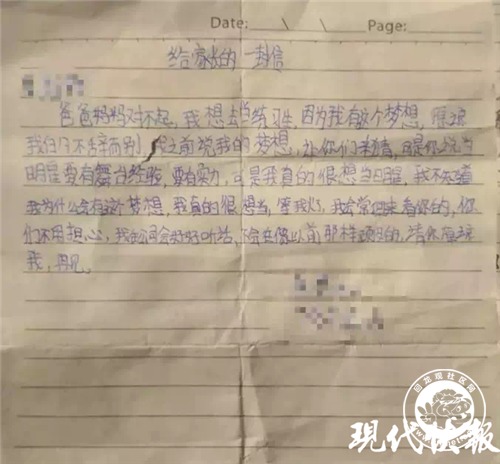 Date: \ \ Page:
给家长的一封信
爸爸妈妈对不起，我想去当练习生，因为我有这个梦想，原谅
我的不辞而别，我之前说我的梦想，让你们，可是你说当
明星要有舞台经验，要有实力，可是我真的很想当明星，我不知道
我为什么会有这个梦想，我真的很想当，等我火了，我会常回来看你的，你
们不用担心，我也会好好听话，不会在像以前那样顽皮的，请你原谅
我，再见。
回龙观社区网
现代快报